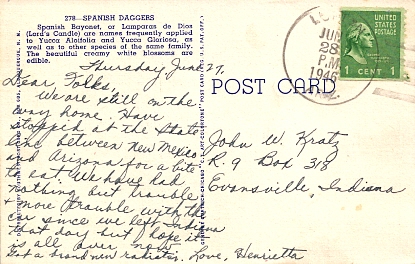 278—SPANISH DAGGERS
Spanish Bayonet, or Lamparas de Dios
(Lord's Candle) are names frequently applied
to Yucca Aloifolia and Yucca Gloriosa, as
well as to other species of the same family.
The beautiful creamy white blossoms are
edible.
Thursday, June 27,
Dear Folks,
We are still on the
way home. Have
stopped at the State
line between New Mexico
and Arizona for a bite
to eat. We have had
nothing but trouble
& more trouble with the
car since we left Indiana
that day but I hope it
is all over now.
Got a brand new radiator. Love, Henrietta
POST CARD
JUN
28
P.M.
1946
ARIZ.
UNITED
STATES
POSTAGE
1 CENT 1
John W. Kratz
R. 9 Box 318
Evansville, Indiana